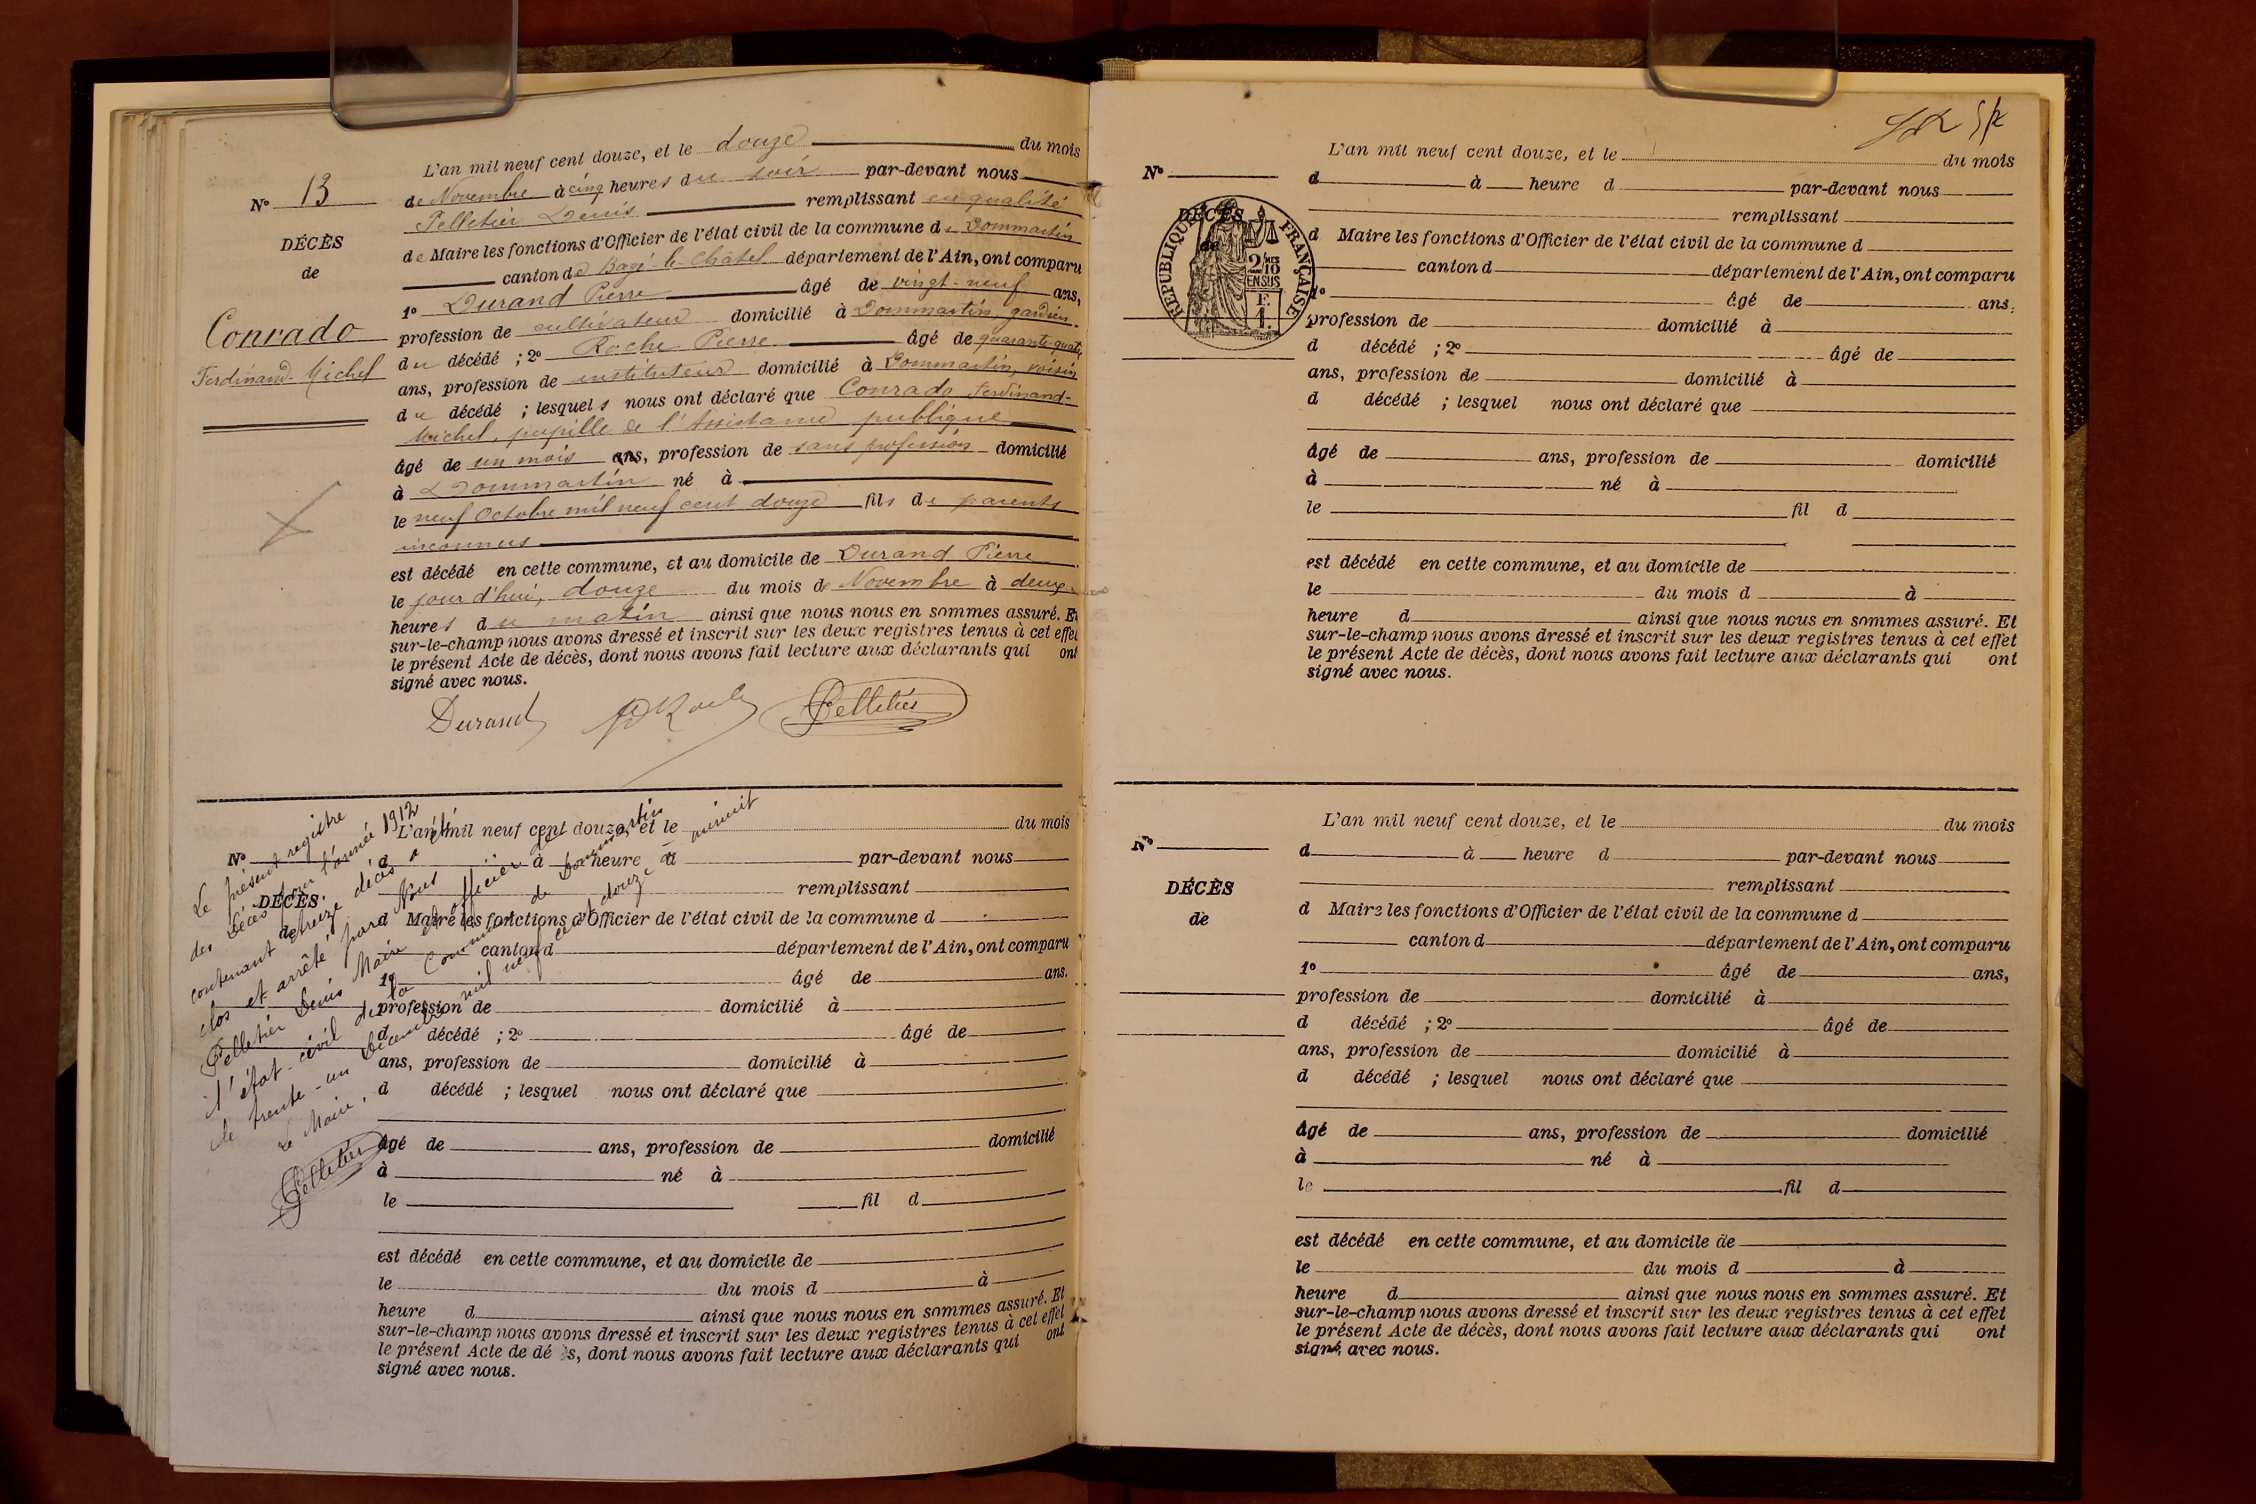 L'an mil neuf cent douze, et le douze du mois
de Novembre à cinq heures du soir par-devant nous
Pelletier Denis remplissant en qualité
de Maire les fonctions d'Officier de l'état civil de la commune de Dommartin
canton de Bagé-le-Châtel département de l'Ain, ont comparu
1º Durand Pierre âgé de vingt-neuf ans,
profession de cultivateur domicilié à Dommartin, gardien
du décédé ; 2º Roche Pierre âgé de quarante quatre
ans, profession de instituteur domicilié à Dommartin, voisin
du décédé ; lesquels nous ont déclaré que Conrado Ferdinand-
Michel, pupille de l'Assistance publique
âgé de un mois ans, profession de sans profession domicilié
à Dommartin né à
le neuf Octobre mil neuf cent douze fils de parents
inconnus
est décédé en cette commune, et au domicile de Durand Pierre
le jour d'hui, douze du mois de Novembre à deux
heures du matin ainsi que nous nous en sommes assuré. Et
sur-le-champ nous avons dressé et inscrit sur les deux registres tenus à cet effet
le présent Acte de décès, dont nous avons fait lecture aux déclarants qui ont
signé avec nous.
Nº 13
DÉCÈS
de
Conrado
Ferdinand-Michel
Durand
Pelletier
L'an mil neuf cent douze, et le du mois
d à heure d par-devant nous
remplissant
d Maire les fonctions d'Officier de l'état civil de la commune d
canton d département de l'Ain, ont comparu
1º âgé de ans.
profession de domicilié à
d décédé ; 2º âgé de
ans, profession de domicilié à
d décédé ; lesquel nous ont déclaré que
âgé de ans, profession de domicilié
à né à
le fil d
est décédé en cette commune, et au domicile de
le du mois d à
heure d ainsi que nous nous en sommes assuré. Et
sur-le-champ nous avons dressé et inscrit sur les deux registres tenus à cet effet
le présent Acte de dé s, dont nous avons fait lecture aux déclarants qui ont
signé avec nous.
Nº
DÉCÈS
de
Le présent registre
des Décès pour l'année 1912
contenant treize décès a été
clos et arrêté par Nous
Pelletier Denis Maire et officier de
l'état-civil de la Commune de Dommartin
le trente-un Décembre mil neuf cent douze à minuit
Le Maire,
Pelletier
L'an mil neuf cent douze, et le du mois
d à heure d par-devant nous
remplissant
d Maire les fonctions d'Officier de l'état civil de la commune d
canton d département de l'Ain, ont comparu
1º âgé de ans,
profession de domicilié à
d décédé ; 2º âgé de
ans, profession de domicilié à
d décédé ; lesquel nous ont déclaré que
âgé de ans, profession de domicilié
à né à
le fil d
est décédé en cette commune, et au domicile de
le du mois d à
heure d ainsi que nous nous en sommes assuré. Et
sur-le-champ nous avons dressé et inscrit sur les deux registres tenus à cet effet
le présent Acte de décès, dont nous avons fait lecture aux déclarants qui ont
signé avec nous.
Nº
DÉCÈS
de
RÉPUBLIQUE FRANÇAISE
2/10
EN SUS
F.
1.
L'an mil neuf cent douze, et le du mois
d à heure d par-devant nous
remplissant
d Maire les fonctions d'Officier de l'état civil de la commune d
canton d département de l'Ain, ont comparu
1º âgé de ans,
profession de domicilié à
d décédé ; 2º âgé de
ans, profession de domicilié à
d décédé ; lesquel nous ont déclaré que
âgé de ans, profession de domicilié
à né à
le fil d
est décédé en cette commune, et au domicile de
le du mois d à
heure d ainsi que nous nous en sommes assuré. Et
sur-le-champ nous avons dressé et inscrit sur les deux registres tenus à cet effet
le présent Acte de décès, dont nous avons fait lecture aux déclarants qui ont
signé avec nous.
Nº
DÉCÈS
de